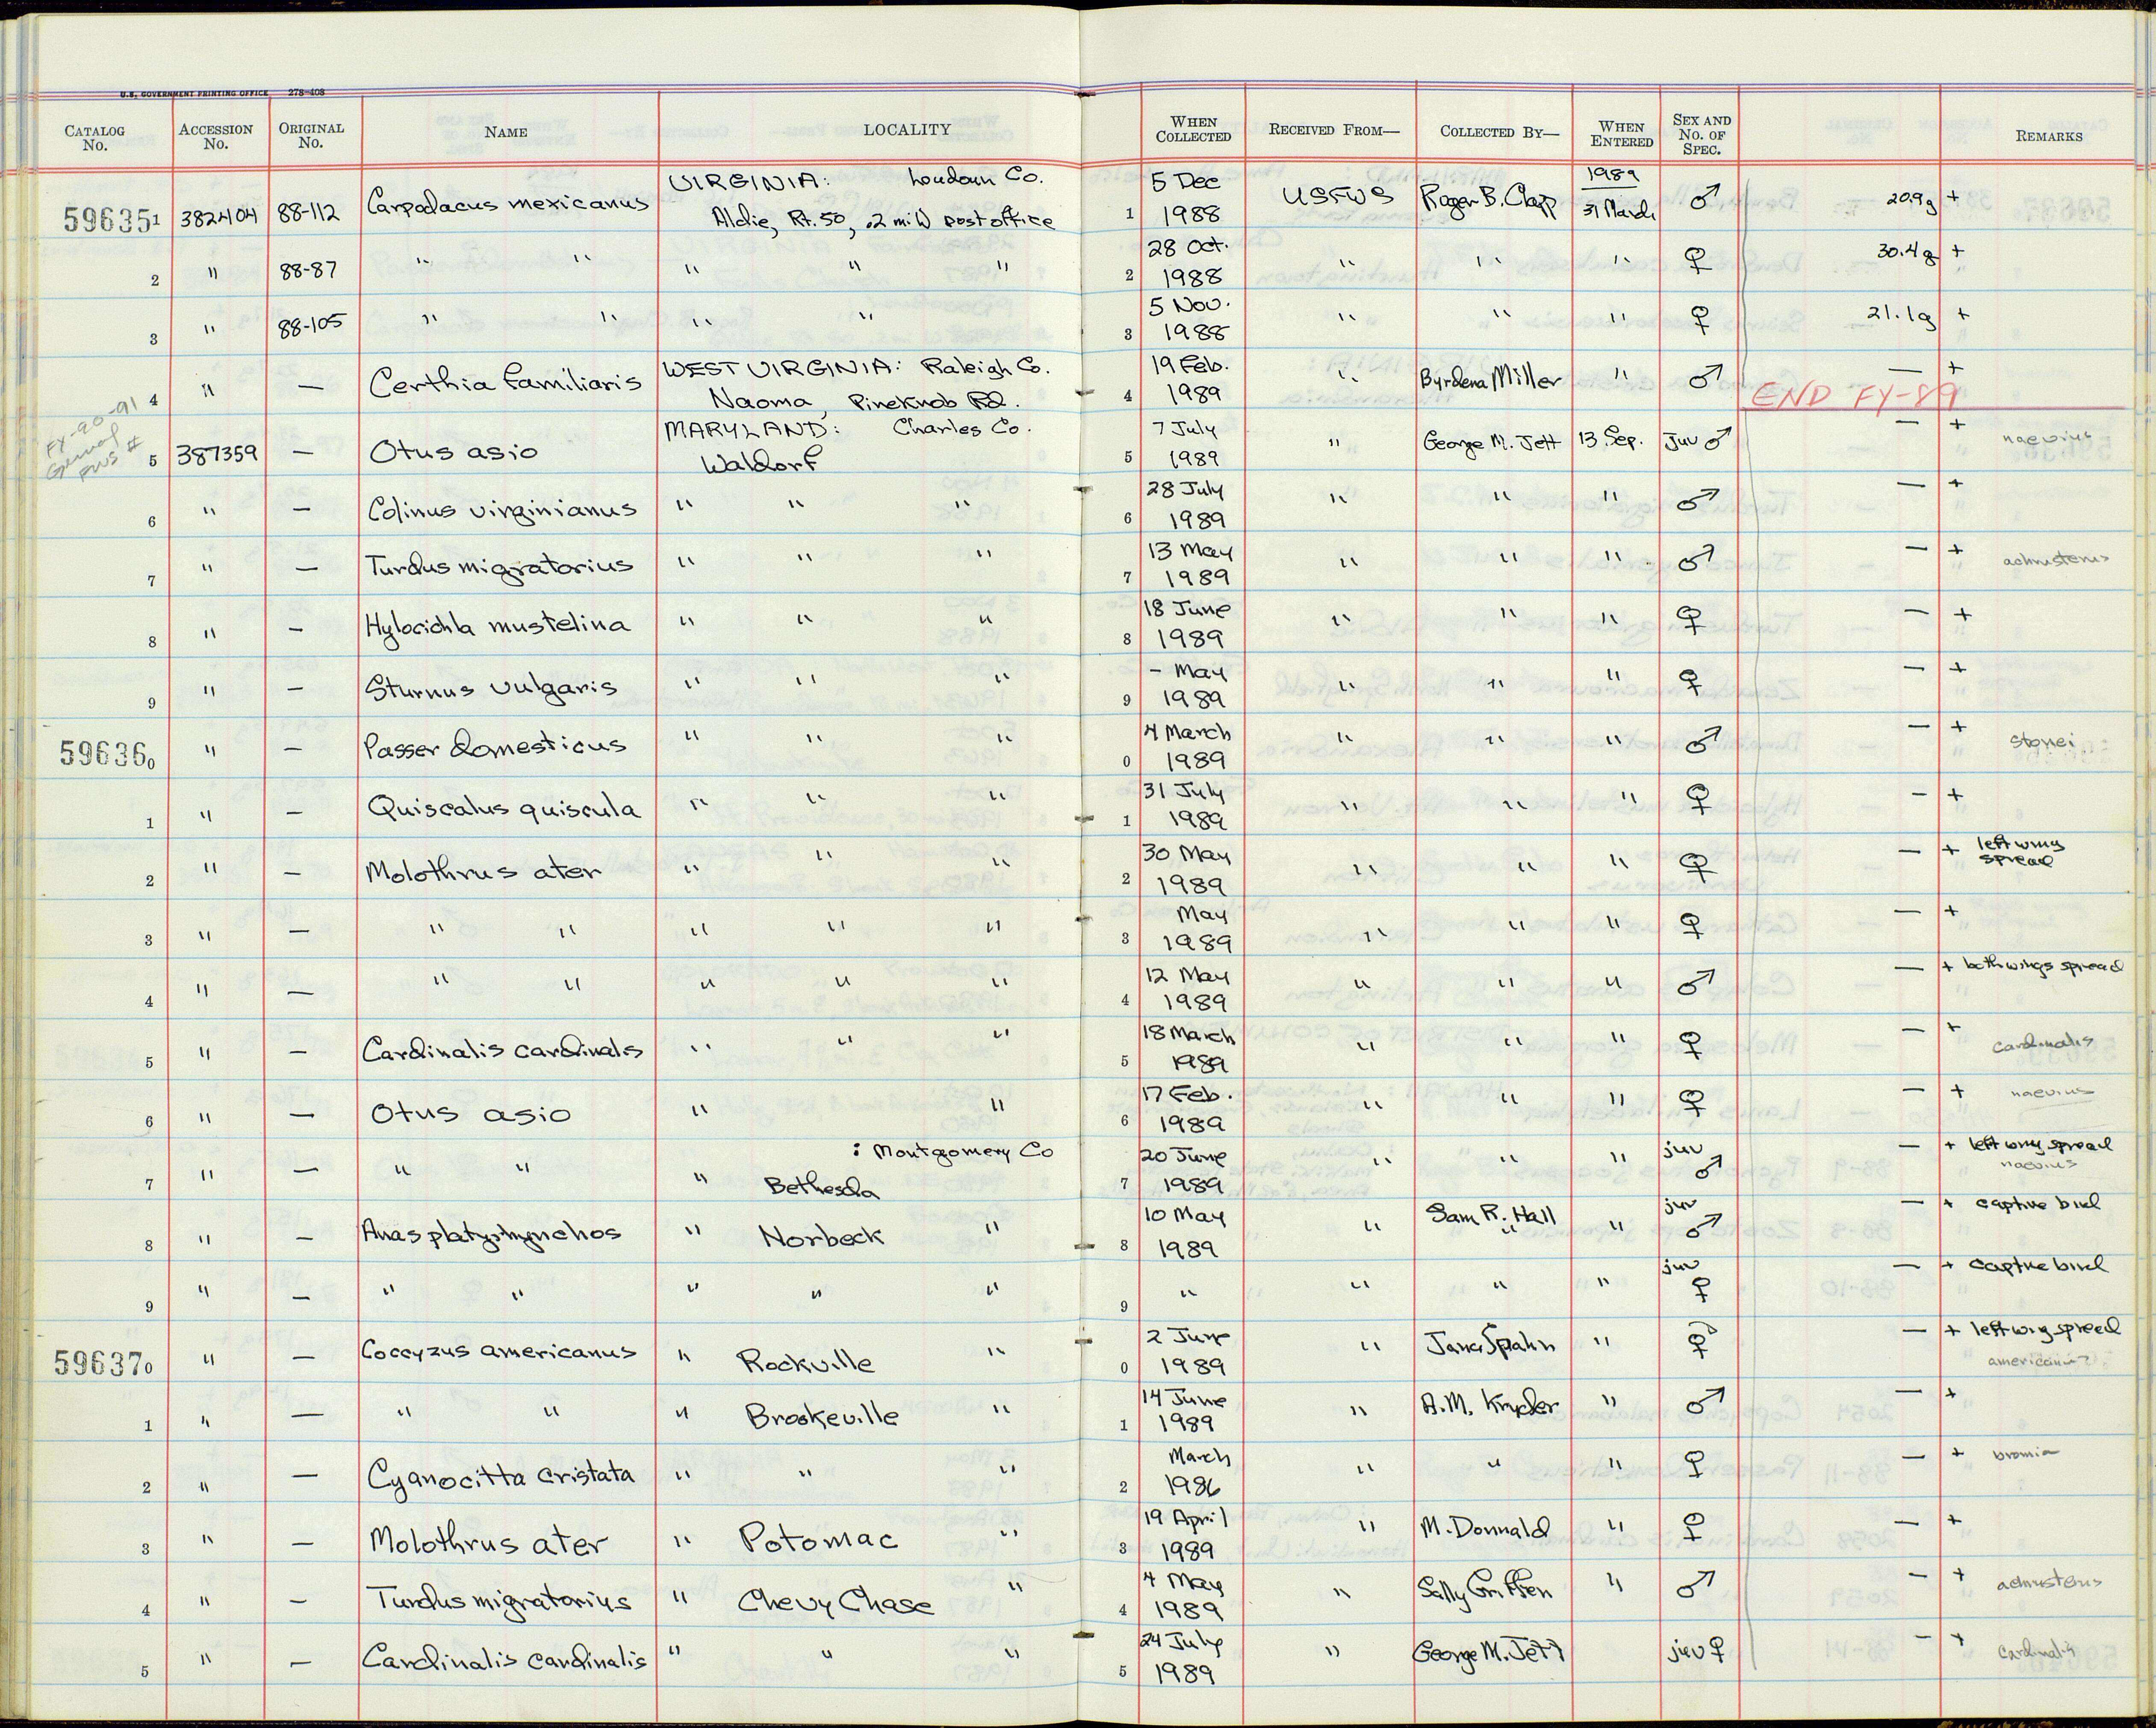 U.S. GOVERNMENT PRINTING OFFICE 278-408
CATALOG No. ACCESSION No. ORIGINAL No. NAME LOCALITY WHEN COLLECTED RECEIVED FROM— COLLECTED BY— WHEN ENTERED SEX AND No. OF SPEC. REMARKS
59635 1 382404 88-112 Carpodacus mexicanus VIRGINIA: Loudoun Co. Aldie, Rt. 50, .2 mi W post office 1 5 Dec 1988 USFWS Roger B. Clapp 1989 31 March ♂ 20.9g +
2 " 88-87 " " " " " 2 28 Oct. 1988 " " " ♀ 30.4g +
3 " 88-105 " " " " 3 5 Nov. 1988 " " " ♀ 21.1g +
4 " — Certhia familiaris WEST VIRGINIA: Raleigh Co. Naoma, Pineknob Rd. 4 19 Feb. 1989 " Byrdena Miller " ♂ — +
END FY-89
FY-90-91
5 387359 — Otus asio MARYLAND: Charles Co. Waldorf 5 7 July 1989 " George M. Jett 13 Sep. juv ♂ — + naevius
6 " — Colinus virginianus " " " 6 28 July 1989 " " " ♂ — +
7 " — Turdus migratorius " " " 7 13 May 1989 " " " ♂ — + achrusterus
8 " — Hylocichla mustelina " " " 8 18 June 1989 " " " ♀ — +
9 " — Sturnus vulgaris " " " 9 - May 1989 " " " ♀ — +
59636 0 " — Passer domesticus " " " 0 4 March 1989 " " " ♂ — +
1 " — Quiscalus quiscula " " " 1 31 July 1989 " " " ♀ — + stonei
2 " — Molothrus ater " " " 2 30 May 1989 " " " ♀ — + left wing spread
3 " — " " " " " 3 May 1989 " " " ♀ — +
4 " — " " " " " 4 12 May 1989 " " " ♂ — + both wings spread
5 " — Cardinalis cardinalis " " " 5 18 March 1989 " " " ♀ — + cardinalis
6 " — Otus asio " " 6 17 Feb. 1989 " " " ♀ — + naevius
7 " — " " " : Montgomery Co Bethesda 7 20 June 1989 " " " juv ♂ — + left wing spread naevius
8 " — Anas platyrhynchos " Norbeck " 8 10 May 1989 " Sam R. Hall " " juv ♂ — + captive bird
9 " — " " " " " 9 " " " " juv ♀ — + captive bird
59637 0 " — Coccyzus americanus " Rockville " 0 2 June 1989 " Jane Spahn " ♀? — + left wing spread americanus
1 " — " " " Brookeville " 1 14 June 1989 " A.M. Kryder " ♂ — +
2 " — Cyanocitta cristata " " " 2 March 1986 " " " ♀ — + bromia
3 " — Molothrus ater " Potomac " 3 19 April 1989 " M. Donnald " ♀ — +
4 " — Turdus migratorius " Chevy Chase " 4 4 May 1989 " Sally Griffen " ♂ — + achrusterus
5 " — Cardinalis cardinalis " " " 5 24 July 1989 " George M. Jett juv ♀ — + cardinalis